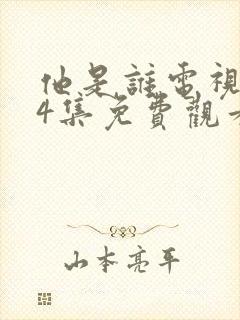 他是誰電視
4集免費觀
山本亮平